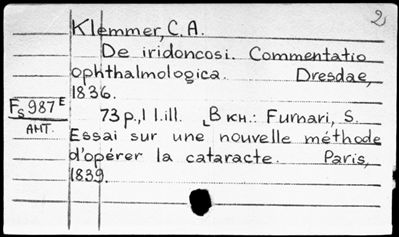 2
Klemmer, C. A.
De iridoncosi. Commentatio
ophthalmologica. Dresdae,
1836.
Fs987E
АНТ.
73 p., 1 l. ill. В кн.: Furnari, S.
Essai sur une nouvelle méthode
d'opérer la cataracte. Paris,
1839.